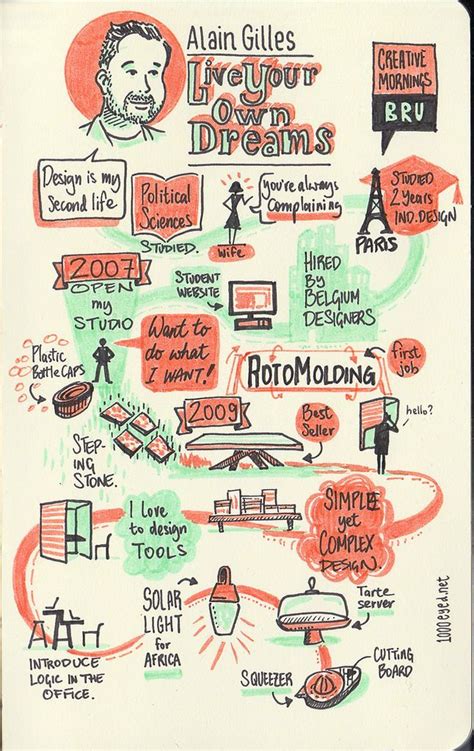 Alain Gilles
Live Your
Own
Dreams
CREATIVE
MORNINGS
BRU
Design is my
Second life
Political
Sciences
STUDIED.
Wife
You're always
Complaining
PARIS
STUDIED
2 years
IND. DESIGN
2007
OPEN
my
STUDIO
STUDENT
WEBSITE
HIRED
By
BELGIUM
DESIGNERS
Want to
do what
I WANT!
Plastic
Bottle CAPS
ROTOMOLDING
first
job
2009
Best
Seller
hello?
STEP-
PING
STONE.
I love
to design
TOOLS
SIMPLE
yet
COMPLEX
DESIGN.
INTRODUCE
LOGIC IN THE
OFFICE.
SOLAR
LIGHT
for
AFRICA
Tarte
server
SQUEEZER
CUTTING
BOARD
1000eyed.net